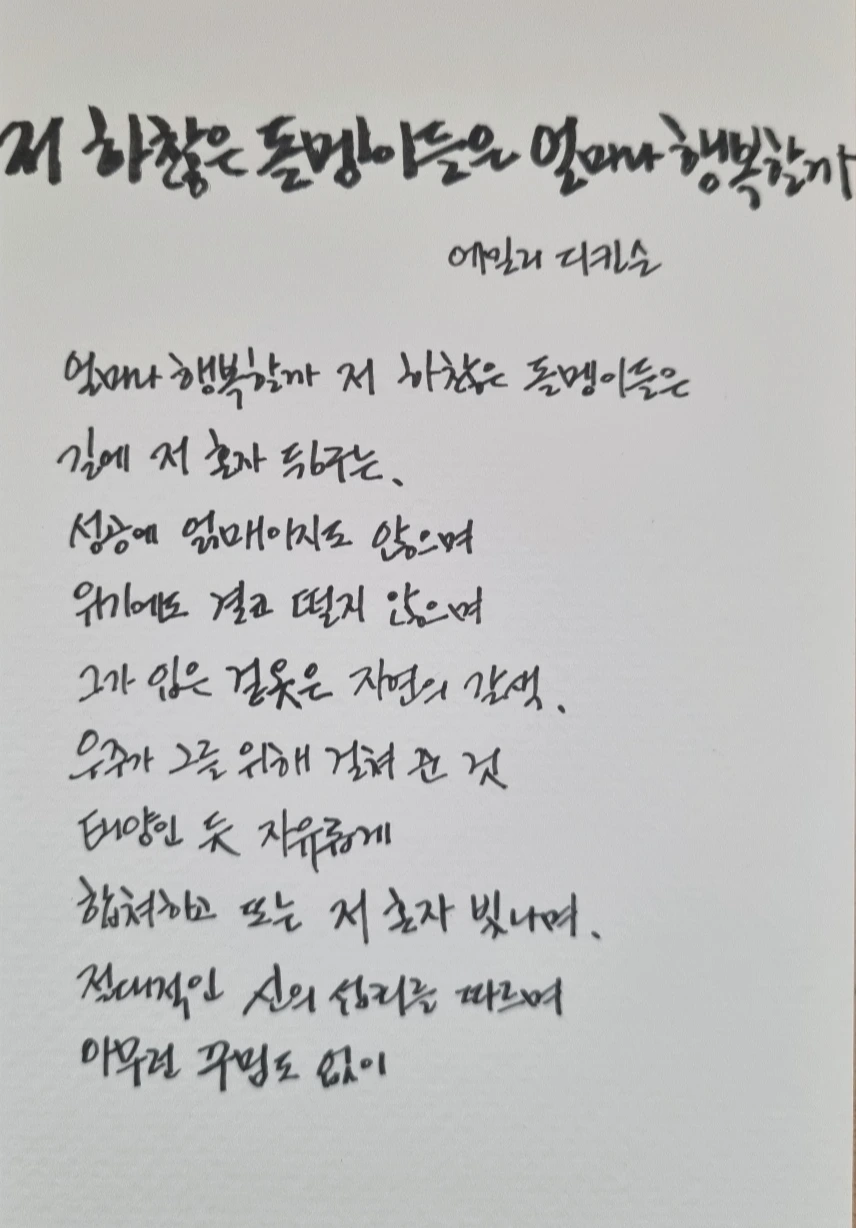 저 하찮은 돌멩이들은 얼마나 행복할까
에밀리 디킨슨
얼마나 행복할까 저 하찮은 돌멩이들은
길에 저 혼자 뒹구는,
성공에 얽매이지도 않으며
위기에도 결코 떨지 않으며
그가 입은 겉옷은 자연의 갈색,
우주가 그를 위해 걸쳐 준 것
태양인 듯 자유롭게
합쳐하고 또는 저 혼자 빛나며,
절대적인 신의 섭리를 따르며
아무런 꾸밈도 없이